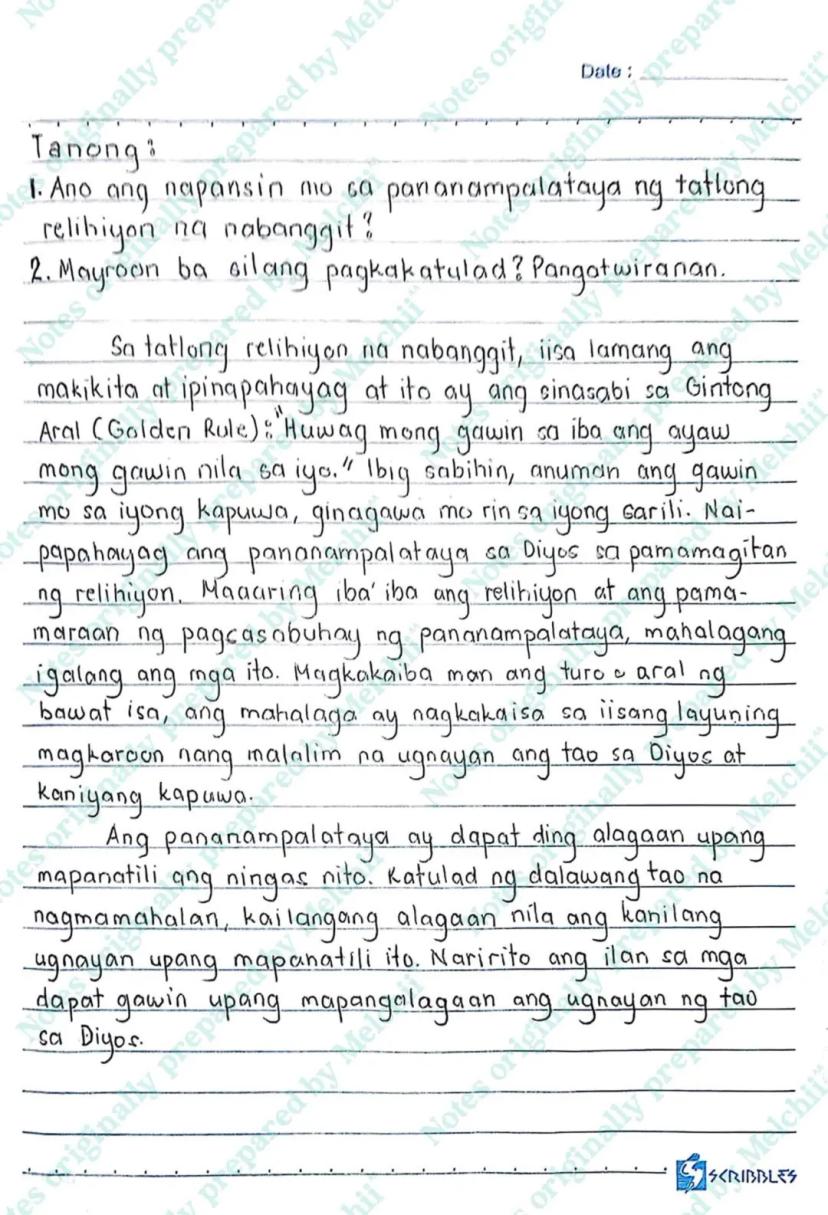 Date :
Tanong :
1. Ano ang napansin mo sa pananampalataya ng tatlong
relihiyon na nabanggit?
2. Mayroon ba silang pagkakatulad? Pangatwiranan.
Sa tatlong relihiyon na nabanggit, iisa lamang ang
makikita at ipinapahayag at ito ay ang sinasabi sa Gintong
Aral (Golden Rule) : "Huwag mong gawin sa iba ang ayaw
mong gawin nila sa iyo." Ibig sabihin, anuman ang gawin
mo sa iyong kapuwa, ginagawa mo rin sa iyong sarili. Nai-
papahayag ang pananampalataya sa Diyos sa pamamagitan
ng relihiyon. Maaaring iba' iba ang relihiyon at ang pama-
maraan ng pagsasabuhay ng pananampalataya, mahalagang
igalang ang mga ito. Magkakaiba man ang turo o aral ng
bawat isa, ang mahalaga ay nagkakaisa sa iisang layuning
magkaroon nang malalim na ugnayan ang tao sa Diyos at
kaniyang kapuwa.
Ang pananampalataya ay dapat ding alagaan upang
mapanatili ang ningas nito. Katulad ng dalawang tao na
nagmamahalan, kailangang alagaan nila ang kanilang
ugnayan upang mapanatili ito. Naririto ang ilan sa mga
dapat gawin upang mapangalagaan ang ugnayan ng tao
sa Diyos.
SCRIBBLES
Notes originally prepared by Melchii